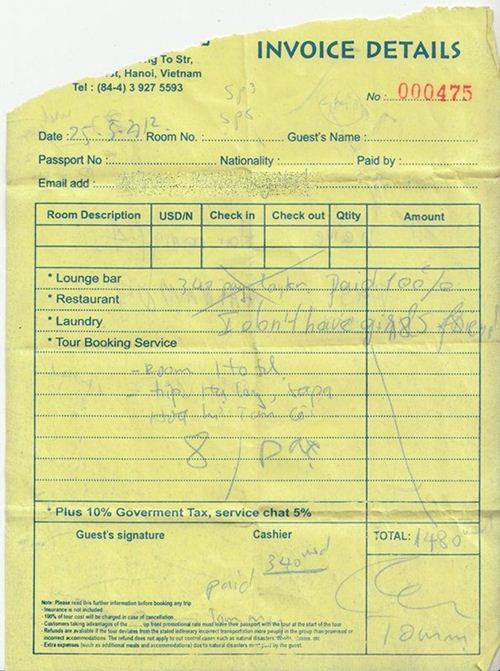 INVOICE DETAILS
To Str,
Hanoi, Vietnam
Tel : (84-4) 3 927 5593
No : 000475
Date : 25-5-212 Room No. : Guest's Name :
Passport No : Nationality : Paid by :
Email add :
Room Description USD/N Check in Check out Qtity Amount
* Lounge bar
340 Paid 100%
* Restaurant
* Laundry
I don't have girls
* Tour Booking Service
- Room Hotel
- trip Ha long, sapa
Hoa lu Tam Coc
8 pax
* Plus 10% Goverment Tax, service chat 5%
Guest's signature Cashier TOTAL: 1480 usd
340 usd
paid
Tommy
Tommy
Note: Please read this further information before any trip
- Insurance is not included
- 100% of tour cost will be charged in case of cancellation
- Customers taking advantages of the up front promotional rate must leave their passport with the tour at the start of the tour
- Refunds are available if the tour deviates from the stated intinerary incorrect transportation more people in the group than promised or
incorrect accommodations. The refund does not apply to out control cases such as natural disasters, etc
- Extra expenses (such as additional meals and accommodations) due to natural disasters must paid by the guest